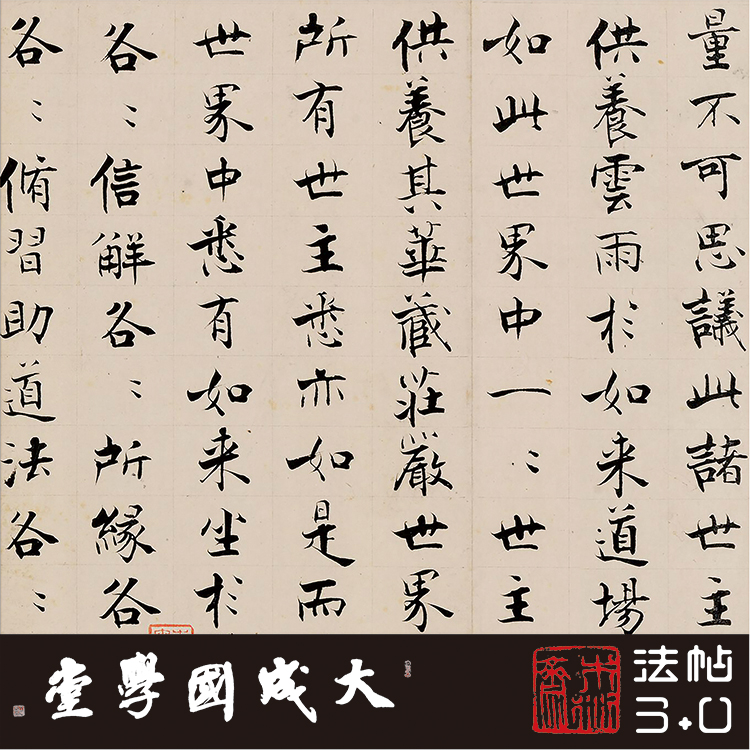 量不可思議此諸世主
供養雲雨於如来道場
如此世界中一〻世主
供養其華藏莊嚴世界
所有世主悉亦如是而
世界中悉有如来坐於
各〻信解各〻所緣各
各〻脩習助道法各〻
大成國學堂
法帖
3.0